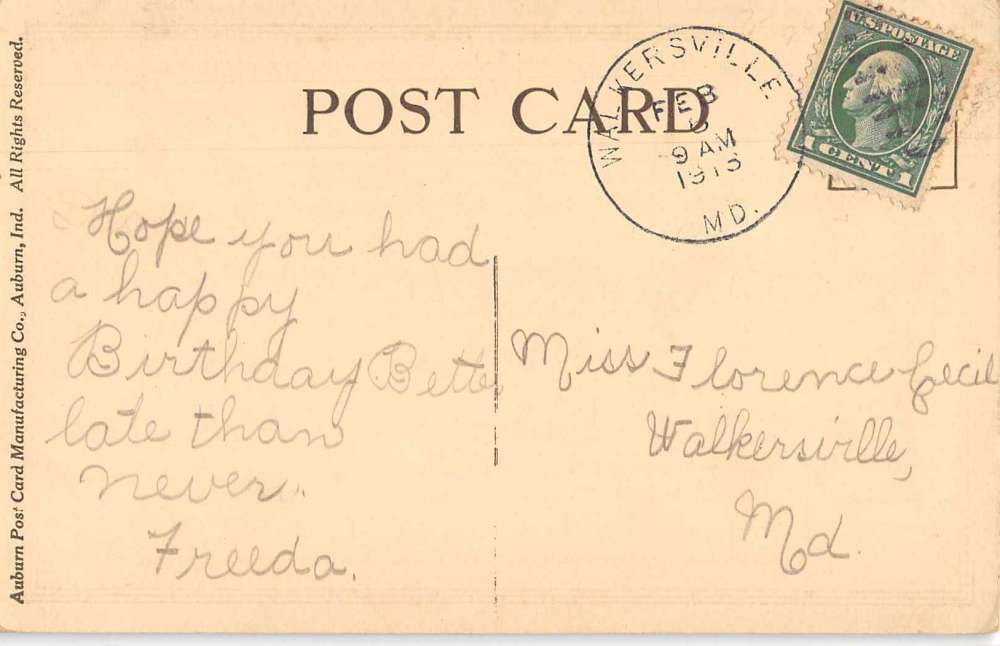 POST CARD
WALKERSVILLE
FEB
5
9 AM
1913
MD.
U.S. POSTAGE
1 CENT 1
Auburn Post Card Manufacturing Co., Auburn, Ind. All Rights Reserved.
Hope you had
a happy
Birthday Bette
late than
never.
Freeda.
Miss Florence Cecil
Walkersville,
Md.